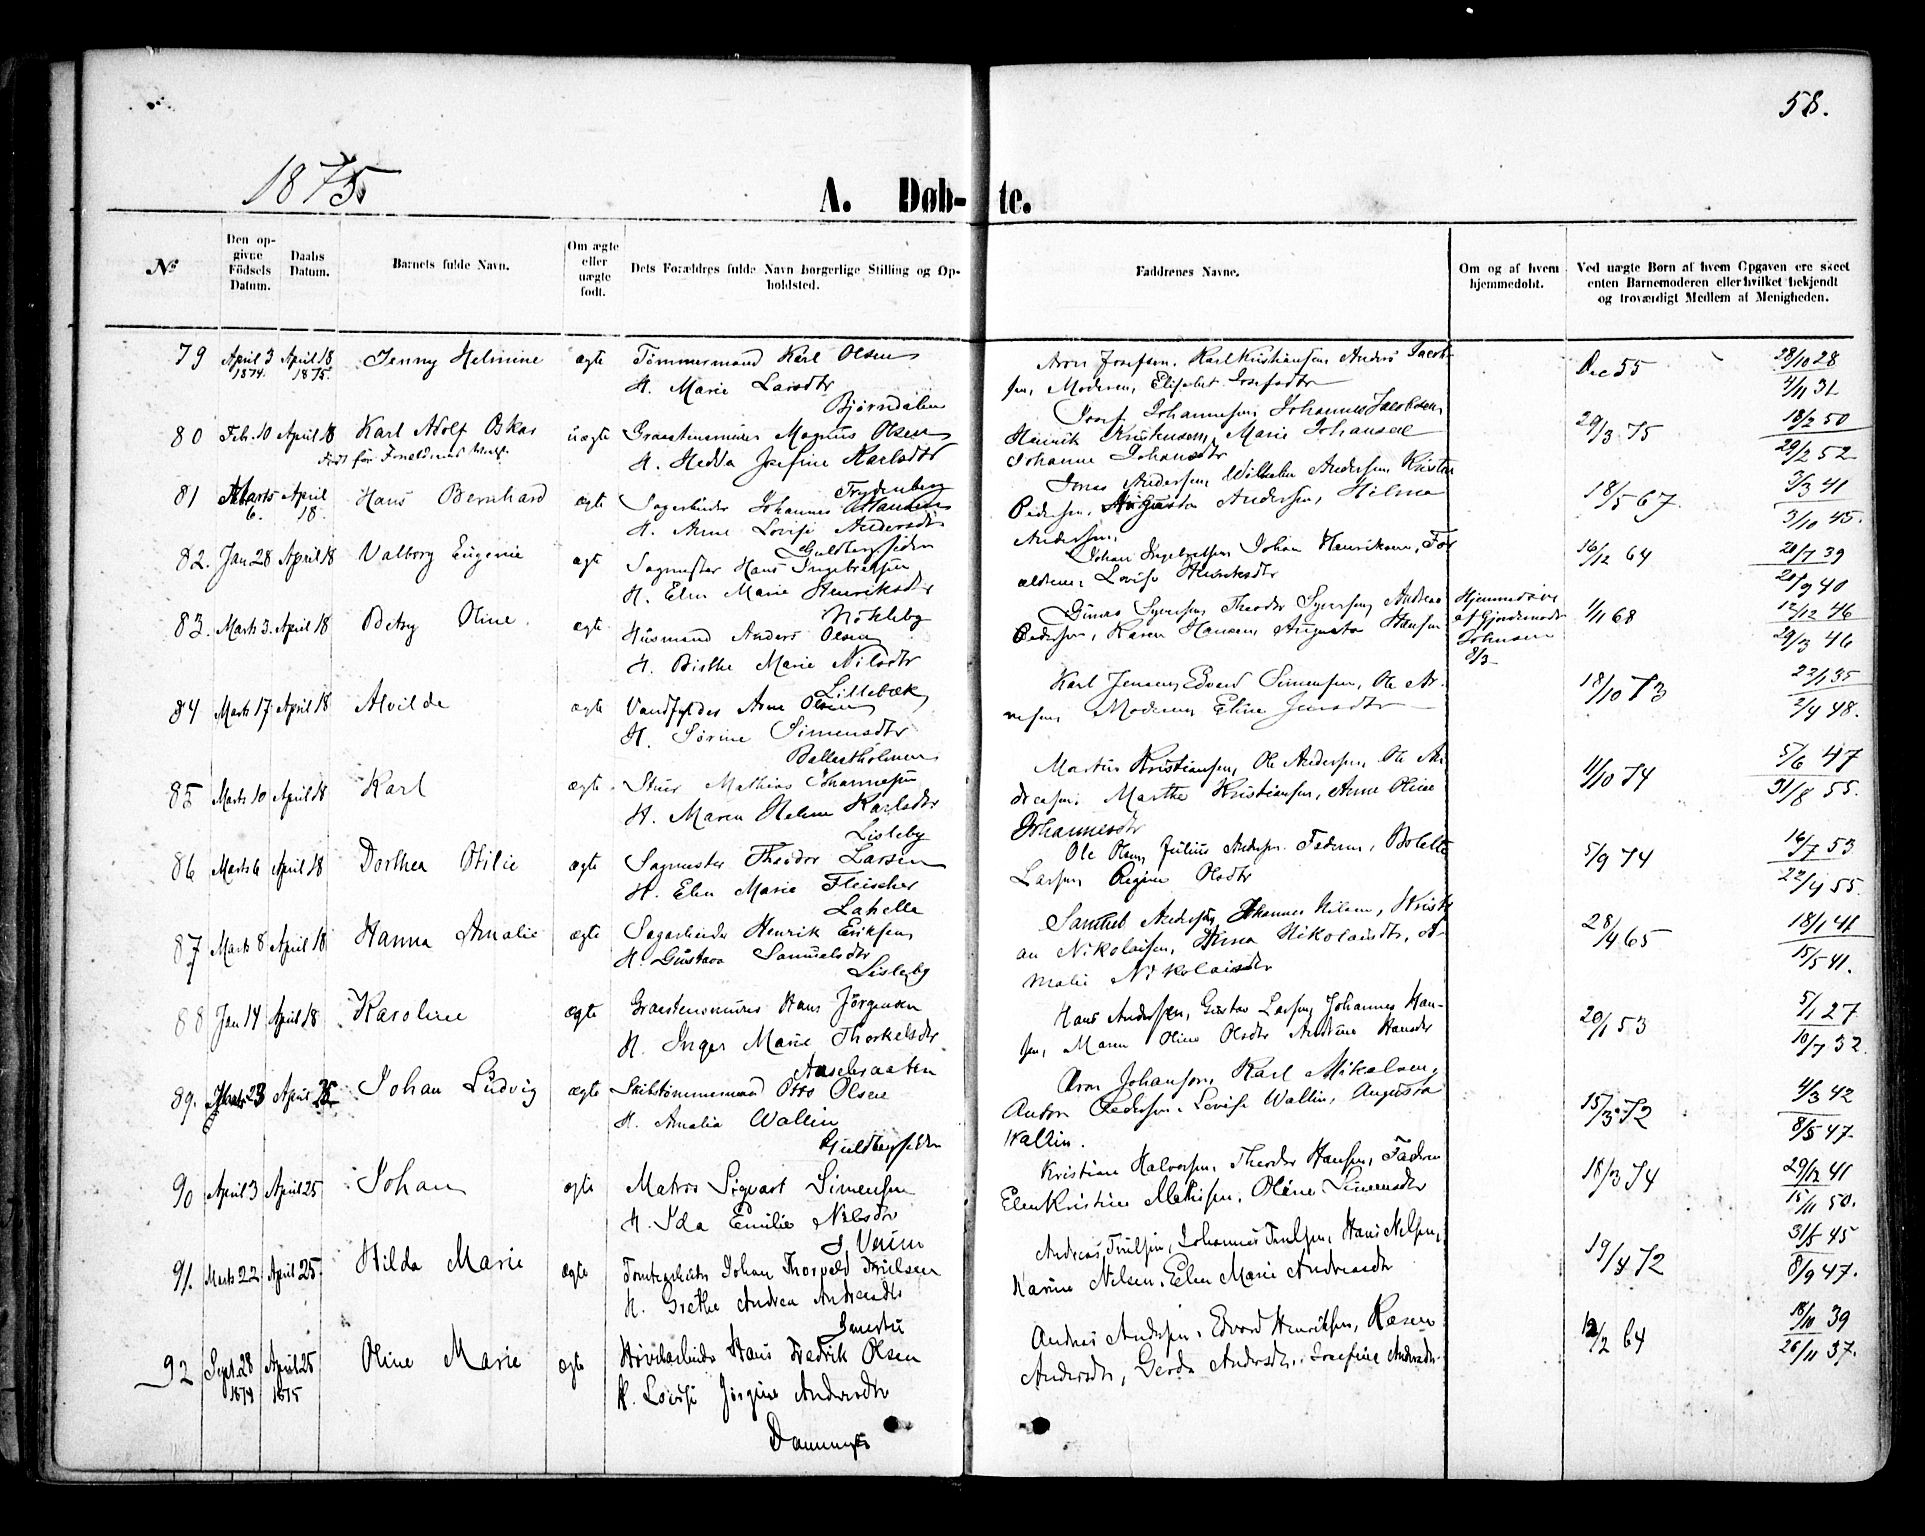 58.
1875
A. Døb-te.
No
Den opgivne Födsels Datum.
Daabs Datum.
Barnets fulde Navn.
Om ægte eller uægte født.
Dets Forældres fulde Navn borgerlige Stilling og Opholdsted.
Faddrenes Navne.
Om og af hvem hjemmedøbt.
Ved uægte Børn af hvem Opgaven ere skeet enten Barnemoderen eller hvilket bekjendt og troværdigt Medlem af Menigheden.
79 April 3 1874. April 18 1875. Jenny Helmine ægte Tömmermand Karl Olsen
H. Marie Larsdtr
Bjørndalen
Karl Kristiansen Anders Jacob-
sen, Moderen, Elisabet Josefsdtr
Dec 55 28/10 28
4/11 31
80 Feb. 10 April 18 Karl Adolf Oskar uægte Graastensminer Magnus Olsen
født før Forældrenes
H. Hedda Josefine Karlsdtr
Trydenborg
Josef Johannesen, Johannes Jacobsen,
Henrik Kristensen, Marie Johansen
Johanne Johansdtr
29/3 75 18/2 50
29/2 52
81 Marts 6. April 18. Hans Bernhard ægte Sagarbeider Johannes Hansen
H. Anne Lovise Andersdtr
Guldbergsiden
Jonas Andersen, Wilhelm Andersen Kristen
Pedersen, Augusta Andersen, Hilma
Andersen,
18/5 67 3/3 41
3/10 45.
82. Jan 28 April 18 Valborg Eugenie ægt Sagmester Hans Ingebretsen
H. Elen Marie Henriksdtr
Nökleby
Johan Ingebretsen Johan Henriksen, For
ældrene Lovise Henriksdtr
16/12 64 20/7 39
20/9 40
83. Marts 3. April 18 Betsy Oline. ægte Husmand Anders Olsen
H. Birthe Marie Nilsdtr
Lillebæk
Syversen, Theodor Syversen, Andreas
Pedersen, Karen Hansen, Augusta Hansen
Hjemmedøbt
af Gjordemoder
Johnsen
8/3
1/11 68 12/12 46
29/3 46
84 Marts 17 April 18 Alvilde ægte Vandfylder Arne Olsen
H. Sörine Simensdtr
Ballastholmen
Karl Jensen, Edvard Simensen, Ole Ar-
nesen Moderen, Eline Jensdtr
18/10 73 23/1 35
2/4 48.
85 Marts 10 April 18 Karl ægte Stuer Mathias Johannesen
H. Maren Helene Karlsdtr
Lisleby
Martin Kristiansen, Ole Andersen, Ole An-
dreasen, Marthe Kristiansen, Anne Oline
Johannesdtr
11/10 74 5/6 47
31/8 55.
86 Marts 6 April 18 Dorthea Otilie ægte Sagmester Theodor Larsen
H. Elen Marie Fleischer
Lahelle
Ole Olsen, Julius Andersen. Faderen, Bolette
Larsen, Regine Olsdtr
5/9 74 16/7 53
22/4 55.
87 Marts 8 April 18 Hanna Amalie ægte Sagarbeider Henrik Eriksen
H. Gustava Samuelsdtr
Lisleby
Samuel Andersen, Johannes Nilsen, Kristi
an Nikolaisen, Anna Nikolaisdtr, A-
malie Nikolaisdtr
28/4 65 18/1 41
15/5 41.
88 Jan 14 April 18 Karoline ægte Graastensminer Hans Jörgensen
H. Inger Marie Thorkelsdtr.
Aaselraaten
Hans Andersen, Gustav Larsen, Johannes Han-
sen, Maren Oline Olsdtr Hansdtr
20/1 53 5/1 27
10/7 32.
89. Marts 23 April 25 Johan Ludvig ægte Skibstömmermand Otto Olsen
H. Amalia Wallin
Guldbergsiden
Johansen, Karl Mikalsen,
Anton Pedersen, Lovise Wallin, Augusta
Wallin.
15/3 72 4/3 42
8/5 47.
90 April 3 April 25 Johan ægte Matros Sigvart Simensen
H. Ida Emilie Nilsdtr
Kristian Halvorsen, Theodor Hansen, Faderen
Elen Kristine Mathisen, Oline Simensdtr
18/3 74 29/12 41
15/11 50.
91. Marts 22 April 25 Hilda Marie ægte Tomtearbeider Johan Thorvald Trulsen
H. Grethe Andrea Andreasdtr
Andreas Trulsen, Johannes Trulsen, Hans Nilsen,
Karine Nilsen, Elen Marie Andreasdtr
19/4 72 31/5 45
8/9 47.
92 Sept. 28 1874 April 25 1875 Oline Marie ægte Hövlarbeider Hans Fredrik Olsen
H. Lovise Jörgine Andersdtr
Dammyr
Andreas Andersen, Edvard Henriksen, Karen
Andersdtr, Gerda Andersdtr, Josefine Andersdtr
12/2 64 18/10 39
26/11 37.